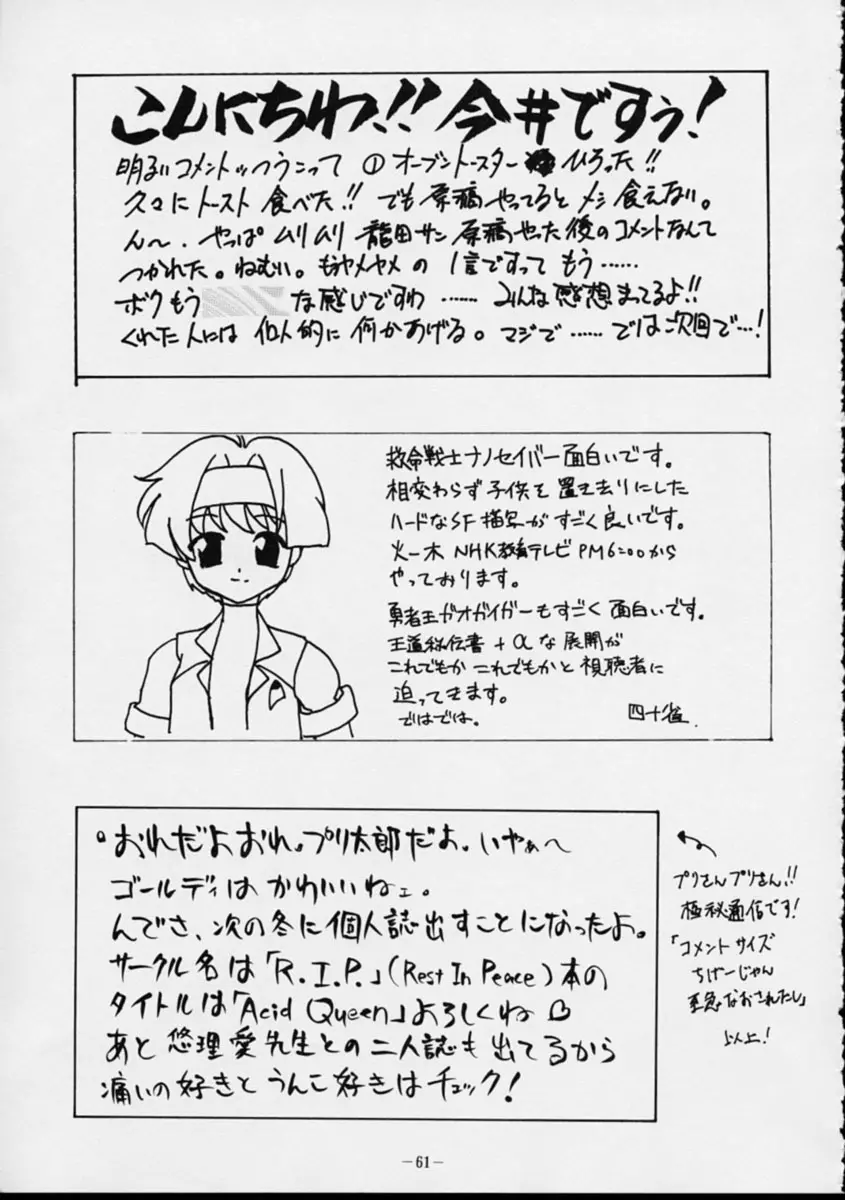 こんにちわ!!今井ですぅ!
明るいコメントっつうこって ① オーブントースター ひろった!!
久々にトースト食べた!!でも原稿やってるとメシ食えない。
ん〜.やっぱムリムリ 龍田サン原稿やった後のコメントなんて
つかれた。ねむい。もうヤメヤメの1言ですって もう……
ボクもう な感じですわ……みんな感想まってるよ!!
くれた人には個人的に何かあげる。マジで……では次回で…!
救命戦士ナノセイバー面白いです。
相変わらず子供を置き去りにした
ハードなSF描写がすごく良いです。
火〜木 NHK教育テレビ PM6:00から
やっております。
勇者王ガオガイガーもすごく面白いです。
王道秘伝書+αな展開が
これでもかこれでもかと視聴者に
迫ってきます。
ではでは。 四十雀.
おれだよおれ。プリ太郎だよ。いやぁ〜
ゴールディはかわいいねェ。
んでさ、次の冬に個人誌出すことになったよ。
サークル名は「R.I.P.」(Rest In Peace)本の
タイトルは「Acid Queen」よろしくね♡
あと悠理愛先生との二人誌も出てるから
痛いの好きとうんこ好きはチェック!
プリさんプリさん!!
極秘通信です!
「コメントサイズ
ちげーじゃん
至急なおされたし」
以上!
—61—